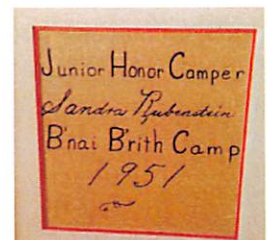 Junior Honor Camper
Sandra Rubenstein
B'nai B'rith Camp
1951